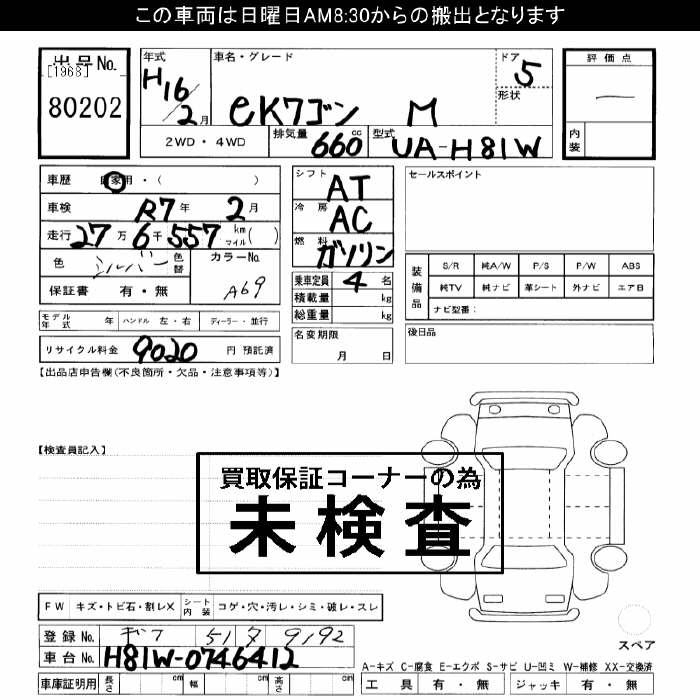 この車両は日曜日AM8:30からの搬出となります
出品No.
[1968]
80202
年式
H16/2月
車名・グレード
eKワゴン M
ドア 5
形状
評価点
―
内装
2WD・4WD
排気量 660 cc
型式 UA-H81W
車歴 自家用・( )
車検 R7年 2月
走行 27万6千557 km マイル( )
色 シルバー 色替
カラーNo. A69
保証書 有・無
モデル年式 年 ハンドル 左・右 ディーラー・並行
リサイクル料金 9020 円 預託済
シフト AT
冷房 AC
燃料 ガソリン
乗車定員 4 名
積載量 kg
総重量 kg
名変期限
月 日
セールスポイント
装備品
S/R 純A/W P/S P/W ABS
純TV 純ナビ 革シート 外ナビ エアB
ナビ型番：
後日品
【出品店申告欄(不良箇所・欠品・注意事項等)】
【検査員記入】
買取保証コーナーの為
未検査
FW キズ・トビ石・割レX シート内装 コゲ・穴・汚レ・シミ・破レ・スレ
登録No. ギフ 51 タ 9192
車台No. H81W-0746412
車庫証明用 長さ cm 幅 cm 高さ cm
スペア
A-キズ C-腐食 E-エクボ S-サビ U-凹ミ W-補修 XX-交換済
工具 有・無 ジャッキ 有・無